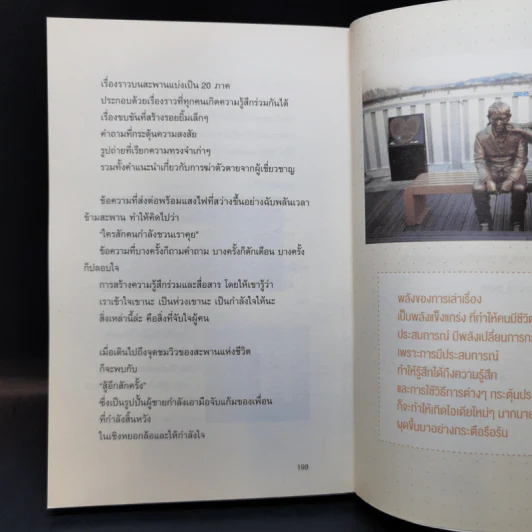 เรื่องราวบนสะพานแบ่งเป็น 20 ภาค
ประกอบด้วยเรื่องราวที่ทุกคนเกิดความรู้สึกร่วมกันได้
เรื่องขบขันที่สร้างรอยยิ้มเล็กๆ
คำถามที่กระตุ้นความสงสัย
รูปถ่ายที่เรียกความทรงจำเก่าๆ
รวมทั้งคำแนะนำเกี่ยวกับการฆ่าตัวตายจากผู้เชี่ยวชาญ
ข้อความที่ส่งต่อพร้อมแสงไฟที่สว่างขึ้นอย่างฉับพลันเวลา
ข้ามสะพาน ทำให้คิดไปว่า
"ใครสักคนกำลังชวนเราคุย"
ข้อความที่บางครั้งก็ถามคำถาม บางครั้งก็ตักเตือน บางครั้ง
ก็ปลอบใจ
การสร้างความรู้สึกร่วมและสื่อสาร โดยให้เขารู้ว่า
เราเข้าใจเขานะ เป็นห่วงเขานะ เป็นกำลังใจให้นะ
สิ่งเหล่านี้ล่ะ คือสิ่งที่จับใจผู้คน
เมื่อเดินไปถึงจุดชมวิวของสะพานแห่งชีวิต
ก็จะพบกับ
"สู้อีกสักครั้ง"
ซึ่งเป็นรูปปั้นผู้ชายกำลังเอามือจับแก้มของเพื่อน
ที่กำลังสิ้นหวัง
ในเชิงหยอกล้อและให้กำลังใจ
199
พลังของการเล่าเรื่อง
เป็นพลังแข็งแกร่ง ที่ทำให้คนมีชีวิต
ประสบการณ์ มีพลังเปลี่ยนการกร
เพราะการมีประสบการณ์
ทำให้รู้สึกได้ถึงความรู้สึก
และการใช้วิธีการต่างๆ กระตุ้นประ
ก็จะทำให้เกิดไอเดียใหม่ๆ มากมาย
ผุดขึ้นมาอย่างกระตือรือร้น